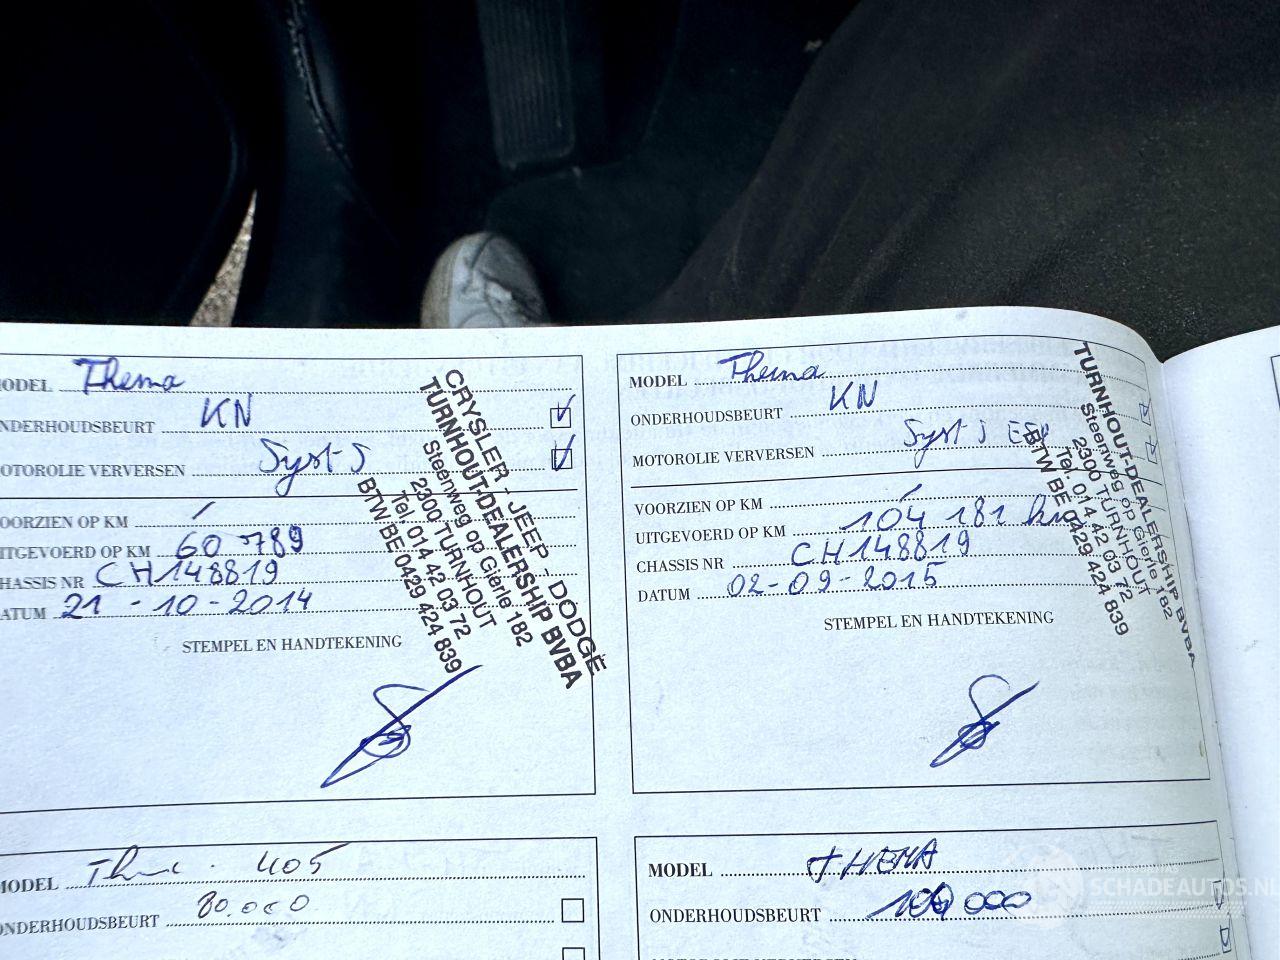 MODEL Thema
ONDERHOUDSBEURT KN
MOTOROLIE VERVERSEN Syst 5
VOORZIEN OP KM /
UITGEVOERD OP KM 60 789
CHASSIS NR CH148819
DATUM 21-10-2014
STEMPEL EN HANDTEKENING
CRYSLER - JEEP - DODGE
TURNHOUT-DEALERSHIP BVBA
Steenweg op Gierle 182
2300 TURNHOUT
Tel. 014 42 03 72
BTW BE 0429 424 839
MODEL Thema
ONDERHOUDSBEURT KN
MOTOROLIE VERVERSEN Syst 5
VOORZIEN OP KM /
UITGEVOERD OP KM 104 181 km
CHASSIS NR CH148819
DATUM 02-09-2015
STEMPEL EN HANDTEKENING
TURNHOUT-DEALERSHIP BVBA
Steenweg op Gierle 182
2300 TURNHOUT
Tel. 014 42 03 72
BTW BE 0429 424 839
MODEL
ONDERHOUDSBEURT 80.000
MODEL THEMA
ONDERHOUDSBEURT
MOTOROLIE VERVERSEN
SCHADEAUTOS.NL